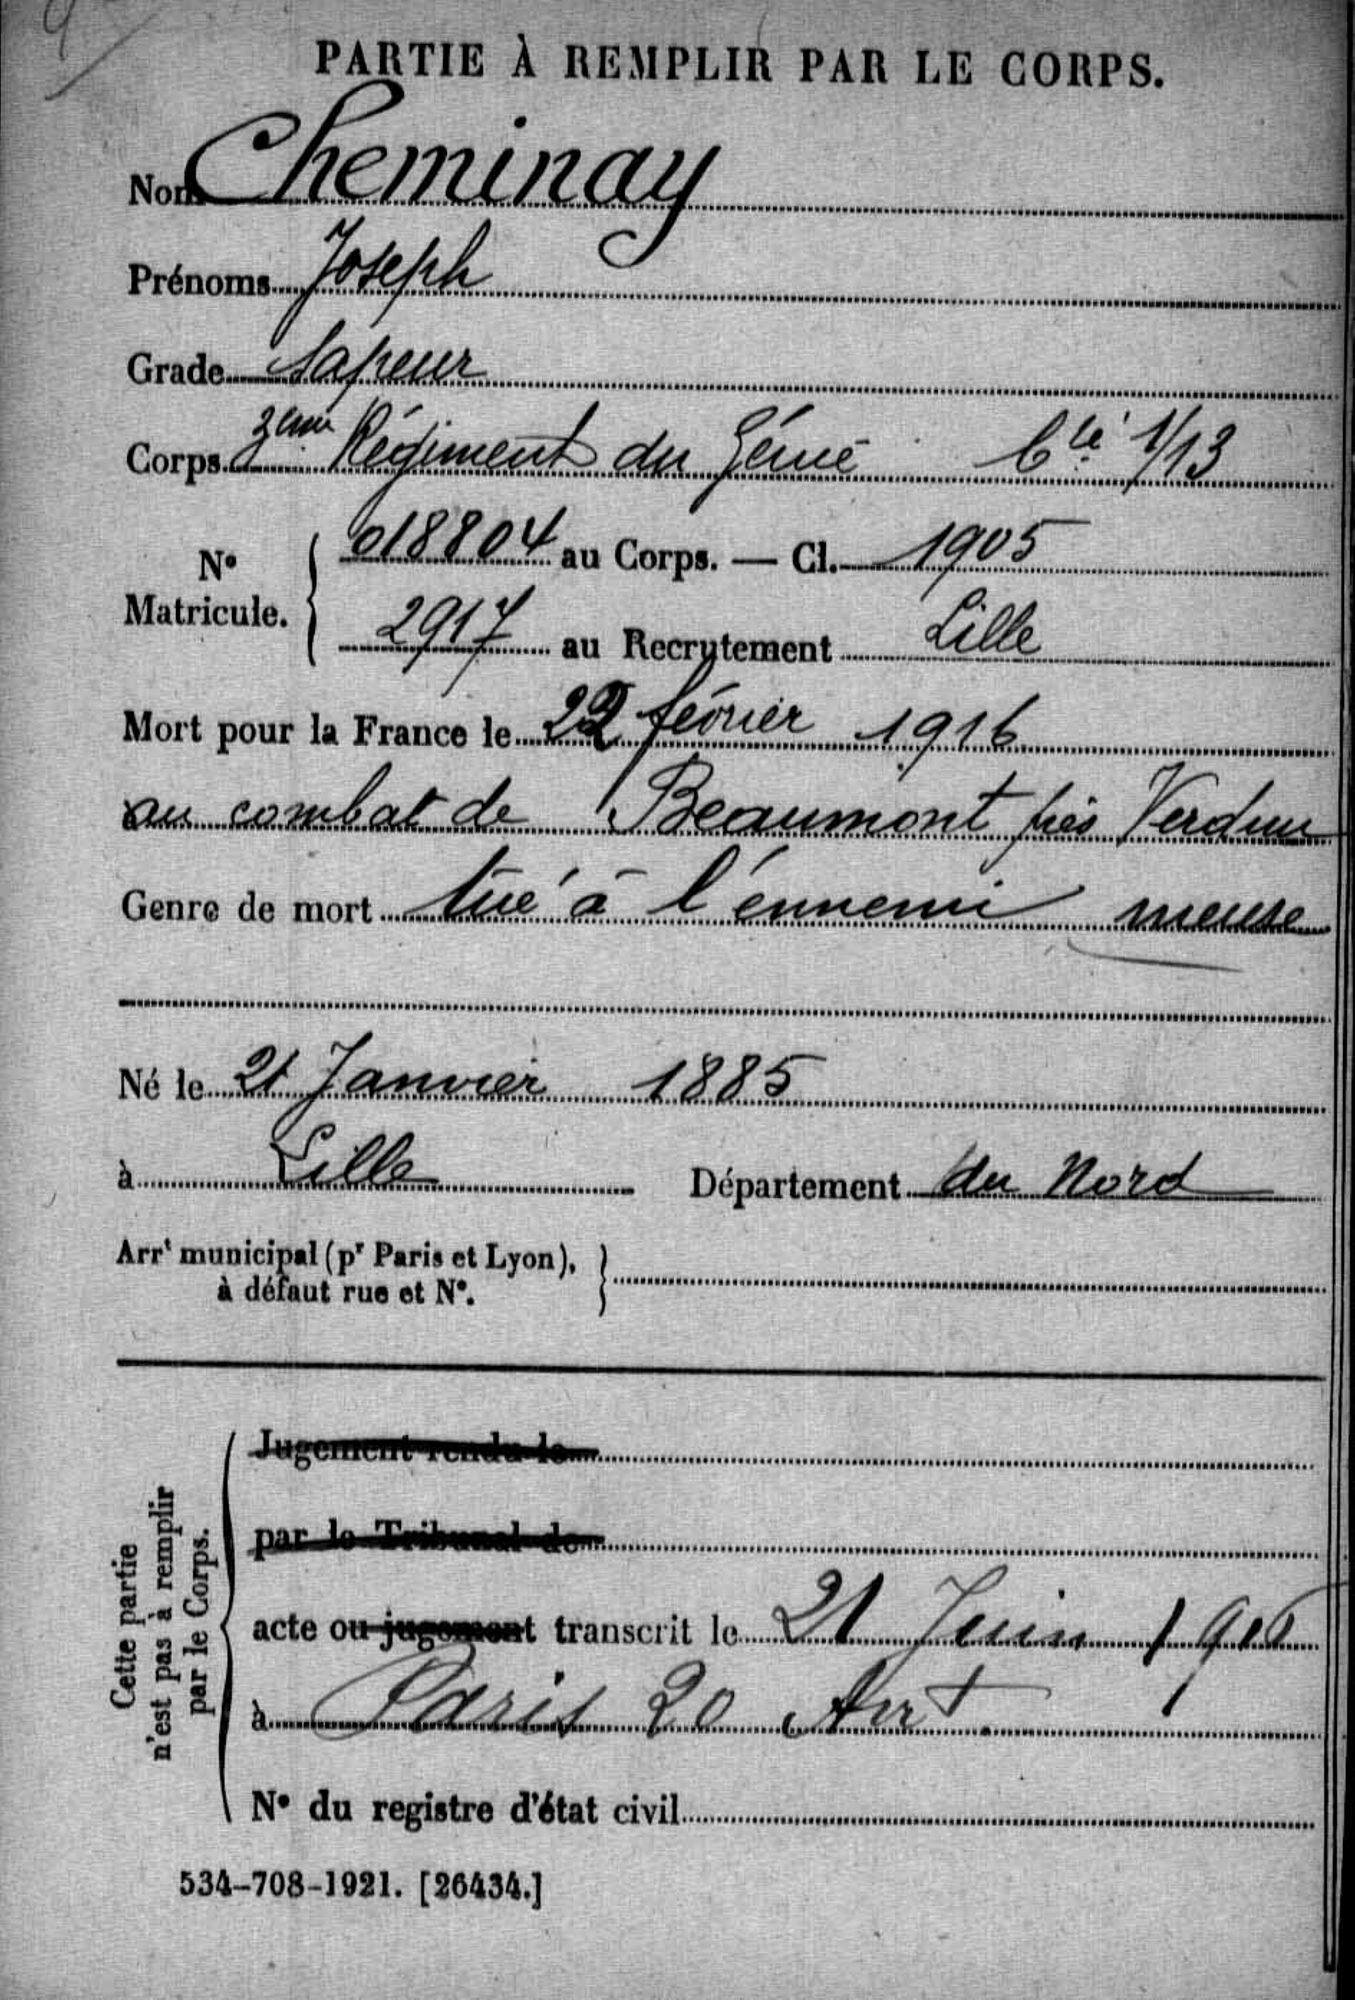 PARTIE À REMPLIR PAR LE CORPS.
Nom Cheminay
Prénoms Joseph
Grade Sapeur
Corps 3eme Régiment du Génie Cie 1/13
No Matricule. 018804 au Corps. — Cl. 1905
2917 au Recrutement Lille
Mort pour la France le 22 février 1916
au combat de Beaumont près Verdun
Genre de mort tué à l'ennemi meuse
Né le 21 Janvier 1885
à Lille Département du Nord
Arrt municipal (pr Paris et Lyon),
à défaut rue et No.
Cette partie
n'est pas à remplir
par le Corps.
Jugement rendu le
par le Tribunal de
acte ou jugement transcrit le 21 Juin 1916
à Paris 20 Arrt.
No du registre d'état civil
534-708-1921. [26434.]